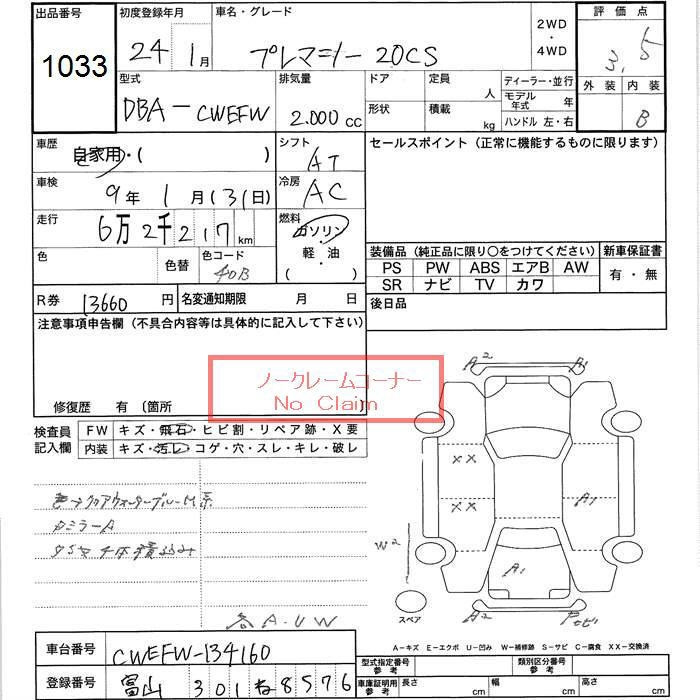 出品番号
1033
初度登録年月
24 1月
車名・グレード
プレマシー 20CS
2WD
・
4WD
評価点
3.5
外装 内装
B
型式
DBA-CWEFW
排気量
2.000 cc
ドア
形状
定員 人
積載 kg
ディーラー・並行
モデル年式 年
ハンドル 左・右
車歴
自家用・( )
シフト
AT
セールスポイント(正常に機能するものに限ります)
車検
9年 1月(31日)
冷房
AC
走行
6万2千217km
燃料
ガソリン
軽・油
( )
色
色替
色コード
40B
装備品(純正品に限り○をつけてください)
PS PW ABS エアB AW
SR ナビ TV カワ
新車保証書
有・無
R券 13660 円
名変通知期限 月 日
後日品
注意事項申告欄(不具合内容等は具体的に記入して下さい)
修復歴 有〔箇所 〕
ノークレームコーナー
No Claim
検査員
記入欄
FW キズ・飛石・ヒビ割・リペア跡・X要
内装 キズ・汚レ・コゲ・穴・スレ・キレ・破レ
色→クリアウォーターブルーM系
カミラーA
タイヤ4本積込み
各A.U.W
A2
A1
XX
XX
A1
W2
A1
A2
スペア
A-キズ E-エクボ U-凹み W-補修跡 S-サビ C-腐食 XX-交換済
車台番号
CWEFW-134160
登録番号
富山 301 ね 8576
型式指定番号
参考
類別区分番号
参考
車庫証明用
参考
長さ cm
幅 cm
高さ cm